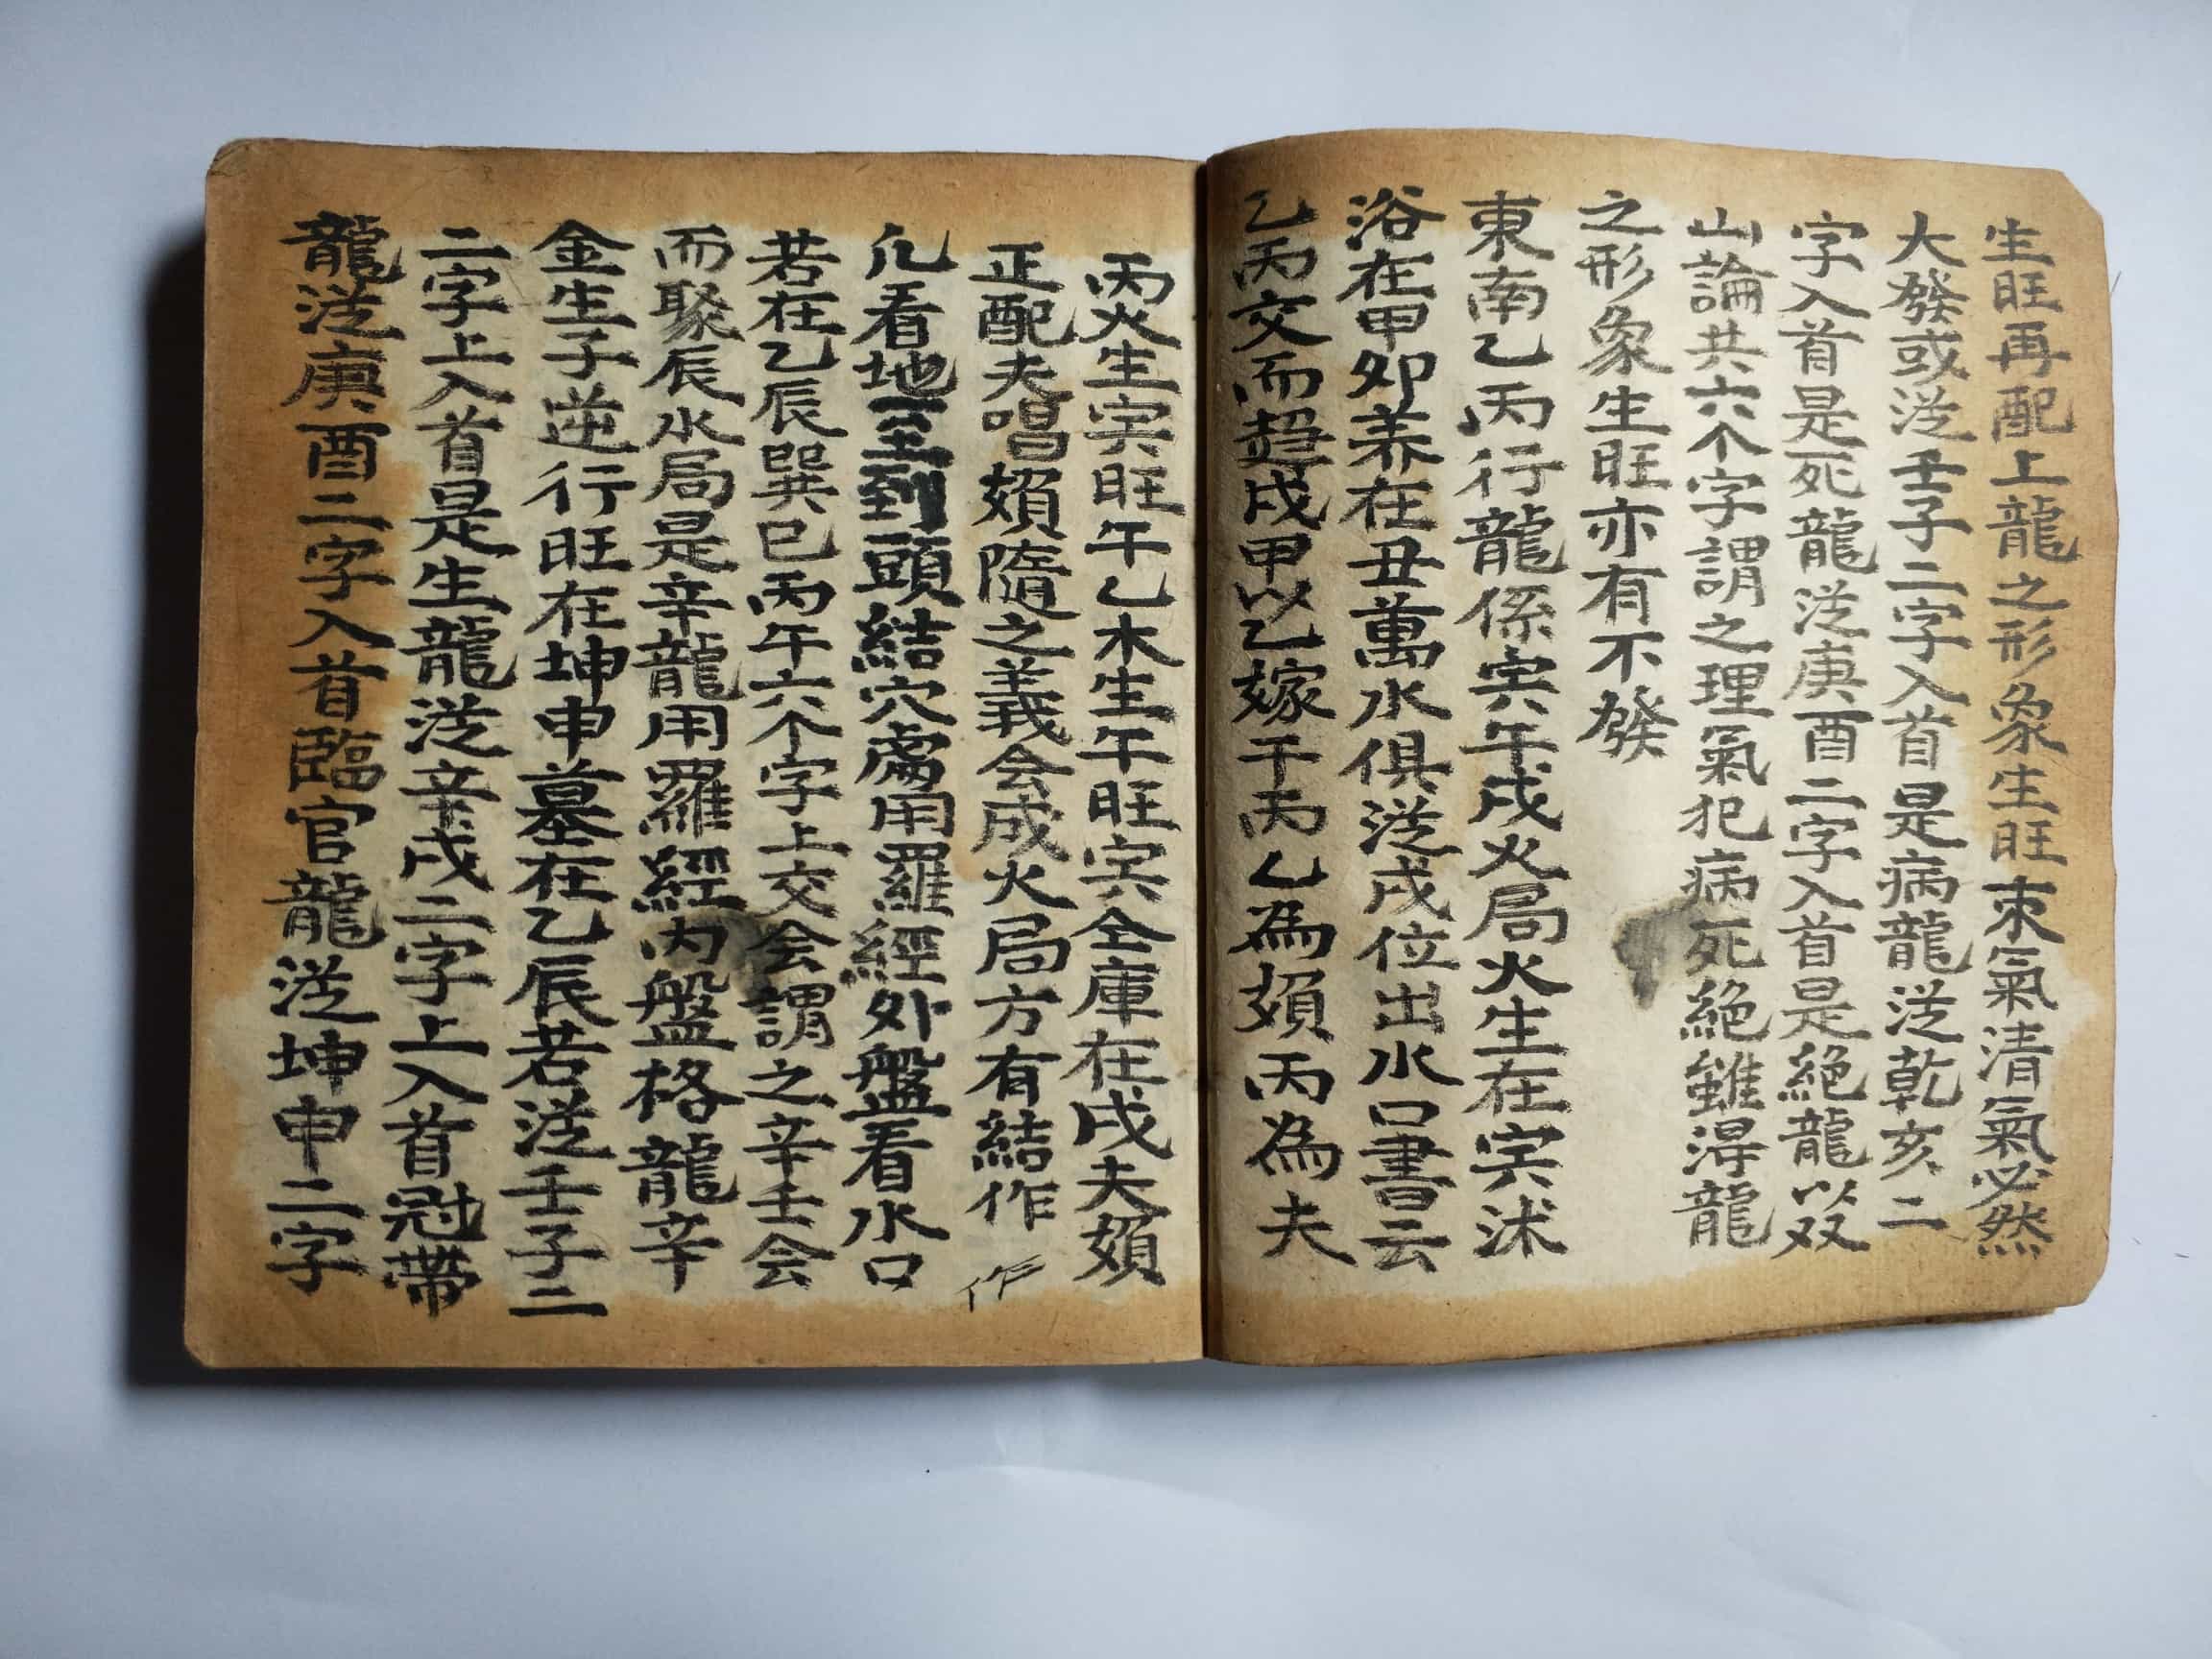 生旺再配上龍之形象生旺束氣清氣必然
大發或泛壬子二字入首是病龍泛乾亥二
字入首是死龍泛庚酉二字入首是絕龍以双
山論共六个字謂之理氣犯病死絕雖淂龍
之形象生旺亦有不發
東南乙丙行龍係寅午戌火局火生在寅沭
浴在甲卯养在丑萬水俱泛戌位出水口書云
乙丙交而趨戌甲以乙嫁于丙乙為婦丙為夫
丙火生寅旺午乙木生午旺寅仝庫在戌夫婦
正配夫唱婦隨之義会成火局方有結作
作
凢看地至到頭結穴處用羅經外盤看水口
若在乙辰巽巳丙午六个字上交会謂之辛壬会
而聚辰水局是辛龍用羅經內盤格龍辛
金生子逆行旺在坤申墓在乙辰若泛壬子二
二字上入首是生龍泛辛戌二字上入首冠帶
龍泛庚酉二字入首臨官龍泛坤申二字